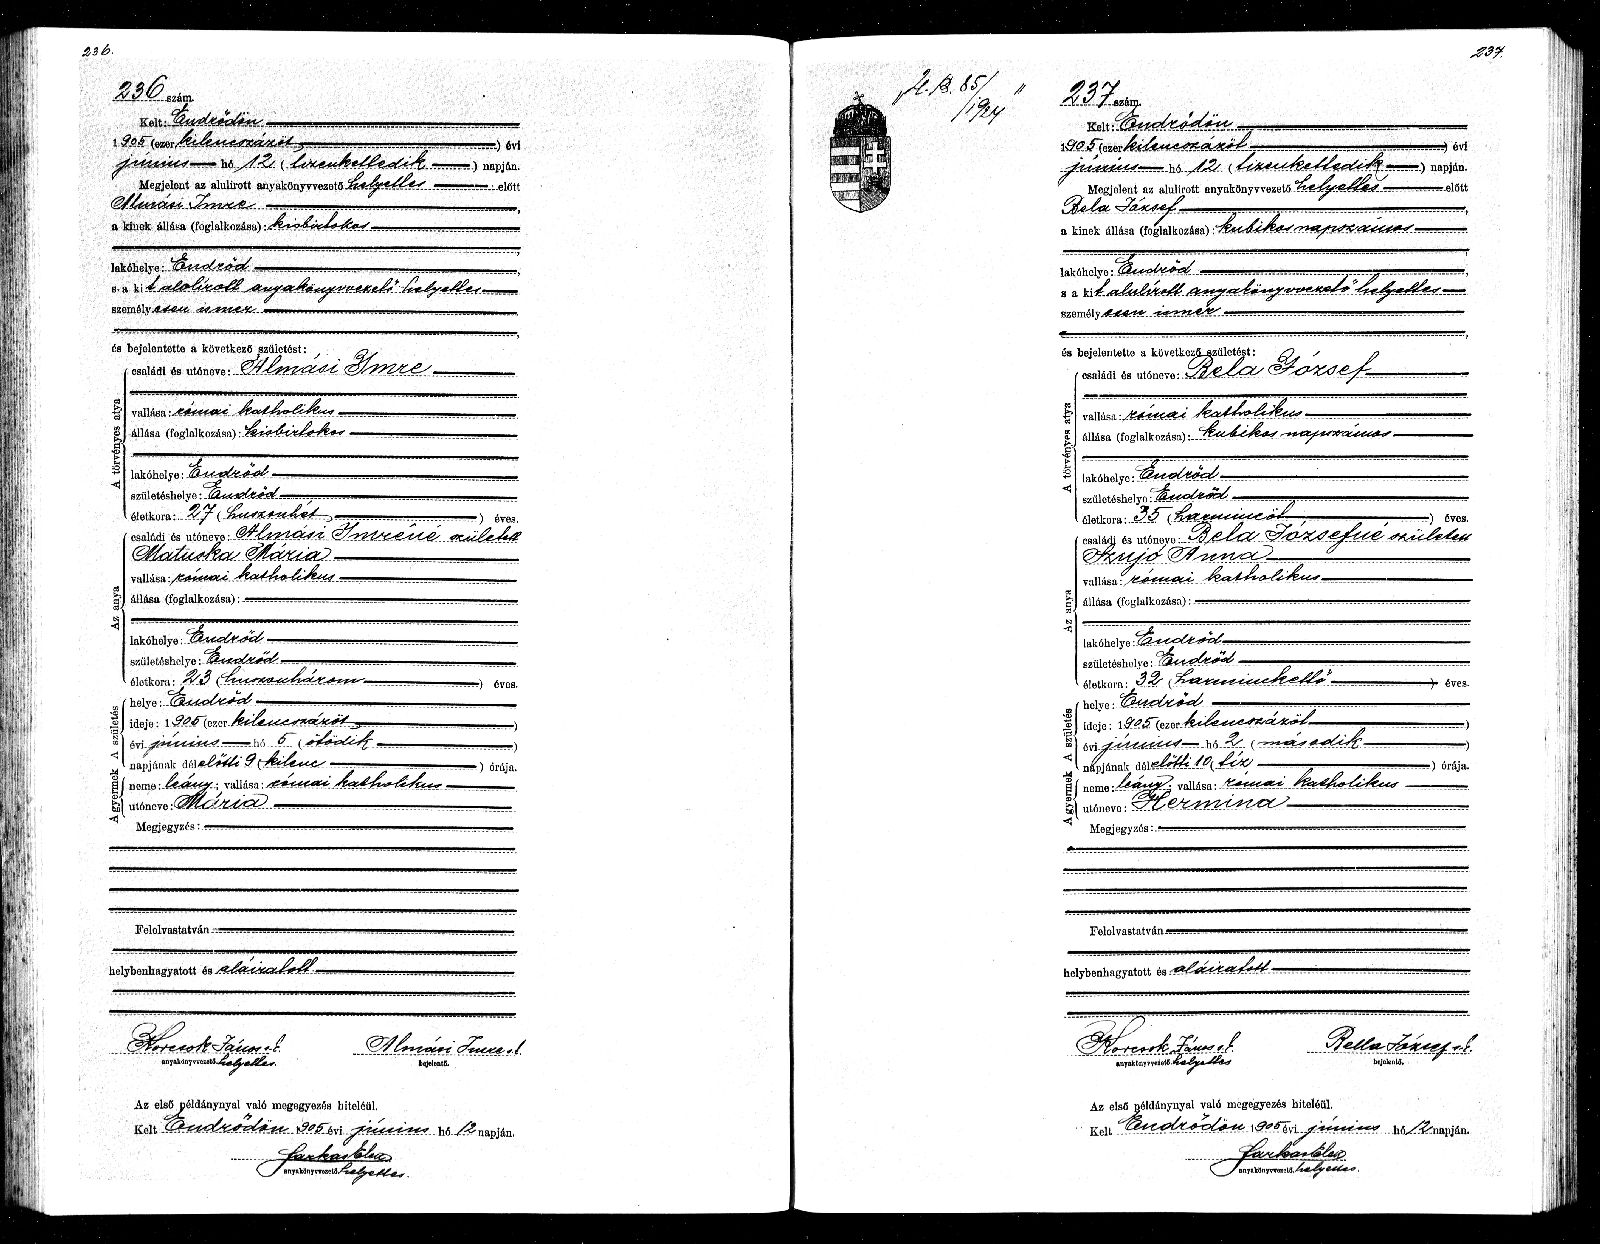 236.
236 szám.
Kelt: Endrődön
1905 (ezer kilencszázöt) évi
június hó 12 (tizenkettedik) napján.
Megjelent az alulirott anyakönyvvezető helyettes előtt
Almási Imre,
a kinek állása (foglalkozása): kisbirtokos
lakóhelye: Endrőd,
s a kit alulírott anyakönyvvezető helyettes
személyesen ismer
és bejelentette a következő születést:
A törvényes atya
családi és utóneve: Almási Imre
vallása: római katholikus
állása (foglalkozása): kisbirtokos
lakóhelye: Endrőd
születéshelye: Endrőd
életkora: 27 (huszonhét) éves.
Az anya
családi és utóneve: Almási Imréné született
Matuska Mária
vallása: római katholikus
állása (foglalkozása):
lakóhelye: Endrőd
születéshelye: Endrőd
életkora: 23 (huszonhárom) éves.
A születés
helye: Endrőd
ideje: 1905 (ezer kilencszázöt)
évi június hó 5 (ötödik)
napjának délelőtti 9 (kilenc) órája.
A gyermek
neme: leány; vallása: római katholikus
utóneve: Mária
Megjegyzés:
Felolvastatván
helybenhagyatott és aláiratott
Korcsok János s.k. Almási Imre s.k.
anyakönyvvezető helyettes. bejelentő.
Az első példánynyal való megegyezés hiteléül.
Kelt Endrődön 1905 évi június hó 12 napján.
Farkas Elek
anyakönyvvezető helyettes.
237.
85/1924
237 szám.
Kelt: Endrődön
1905 (ezer kilencszázöt) évi
június hó 12 (tizenkettedik) napján.
Megjelent az alulirott anyakönyvvezető helyettes előtt
Bela József,
a kinek állása (foglalkozása): kubikos napszámos
lakóhelye: Endrőd,
s a kit alulírott anyakönyvvezető helyettes
személyesen ismer
és bejelentette a következő születést:
A törvényes atya
családi és utóneve: Bela József
vallása: római katholikus
állása (foglalkozása): kubikos napszámos
lakóhelye: Endrőd
születéshelye: Endrőd
életkora: 35 (harmincöt) éves.
Az anya
családi és utóneve: Bela Józsefné született
Szujó Anna
vallása: római katholikus
állása (foglalkozása):
lakóhelye: Endrőd
születéshelye: Endrőd
életkora: 32 (harminckettő) éves.
A születés
helye: Endrőd
ideje: 1905 (ezer kilencszázöt)
évi június hó 2 (második)
napjának délelőtti 10 (tíz) órája.
A gyermek
neme: leány; vallása: római katholikus
utóneve: Hermina
Megjegyzés:
Felolvastatván
helybenhagyatott és aláiratott
Korcsok János s.k. Bella József s.k.
anyakönyvvezető helyettes bejelentő.
Az első példánynyal való megegyezés hiteléül.
Kelt Endrődön 1905 évi június hó 12 napján.
Farkas Elek
anyakönyvvezető helyettes.